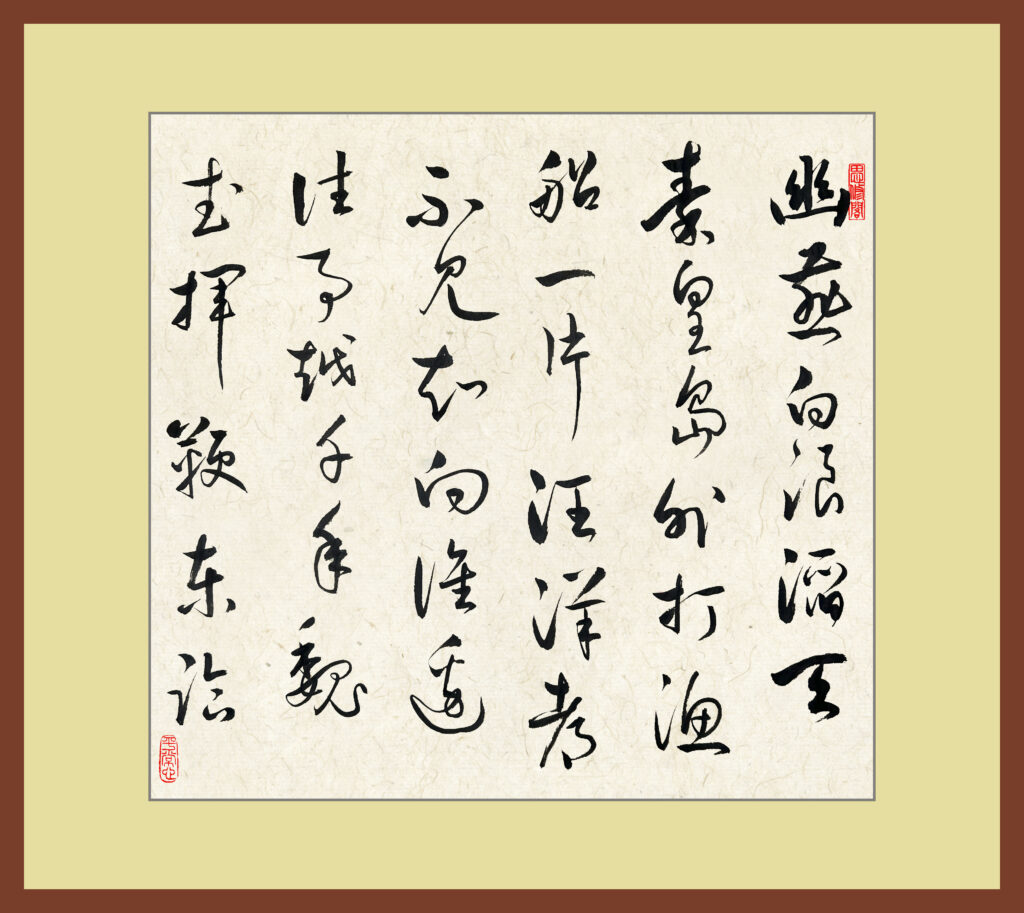 幽燕白浪滔天
秦皇岛外打渔
船一片汪洋都
不见知向谁边
往事越千年魏
武挥鞭东临
平常心